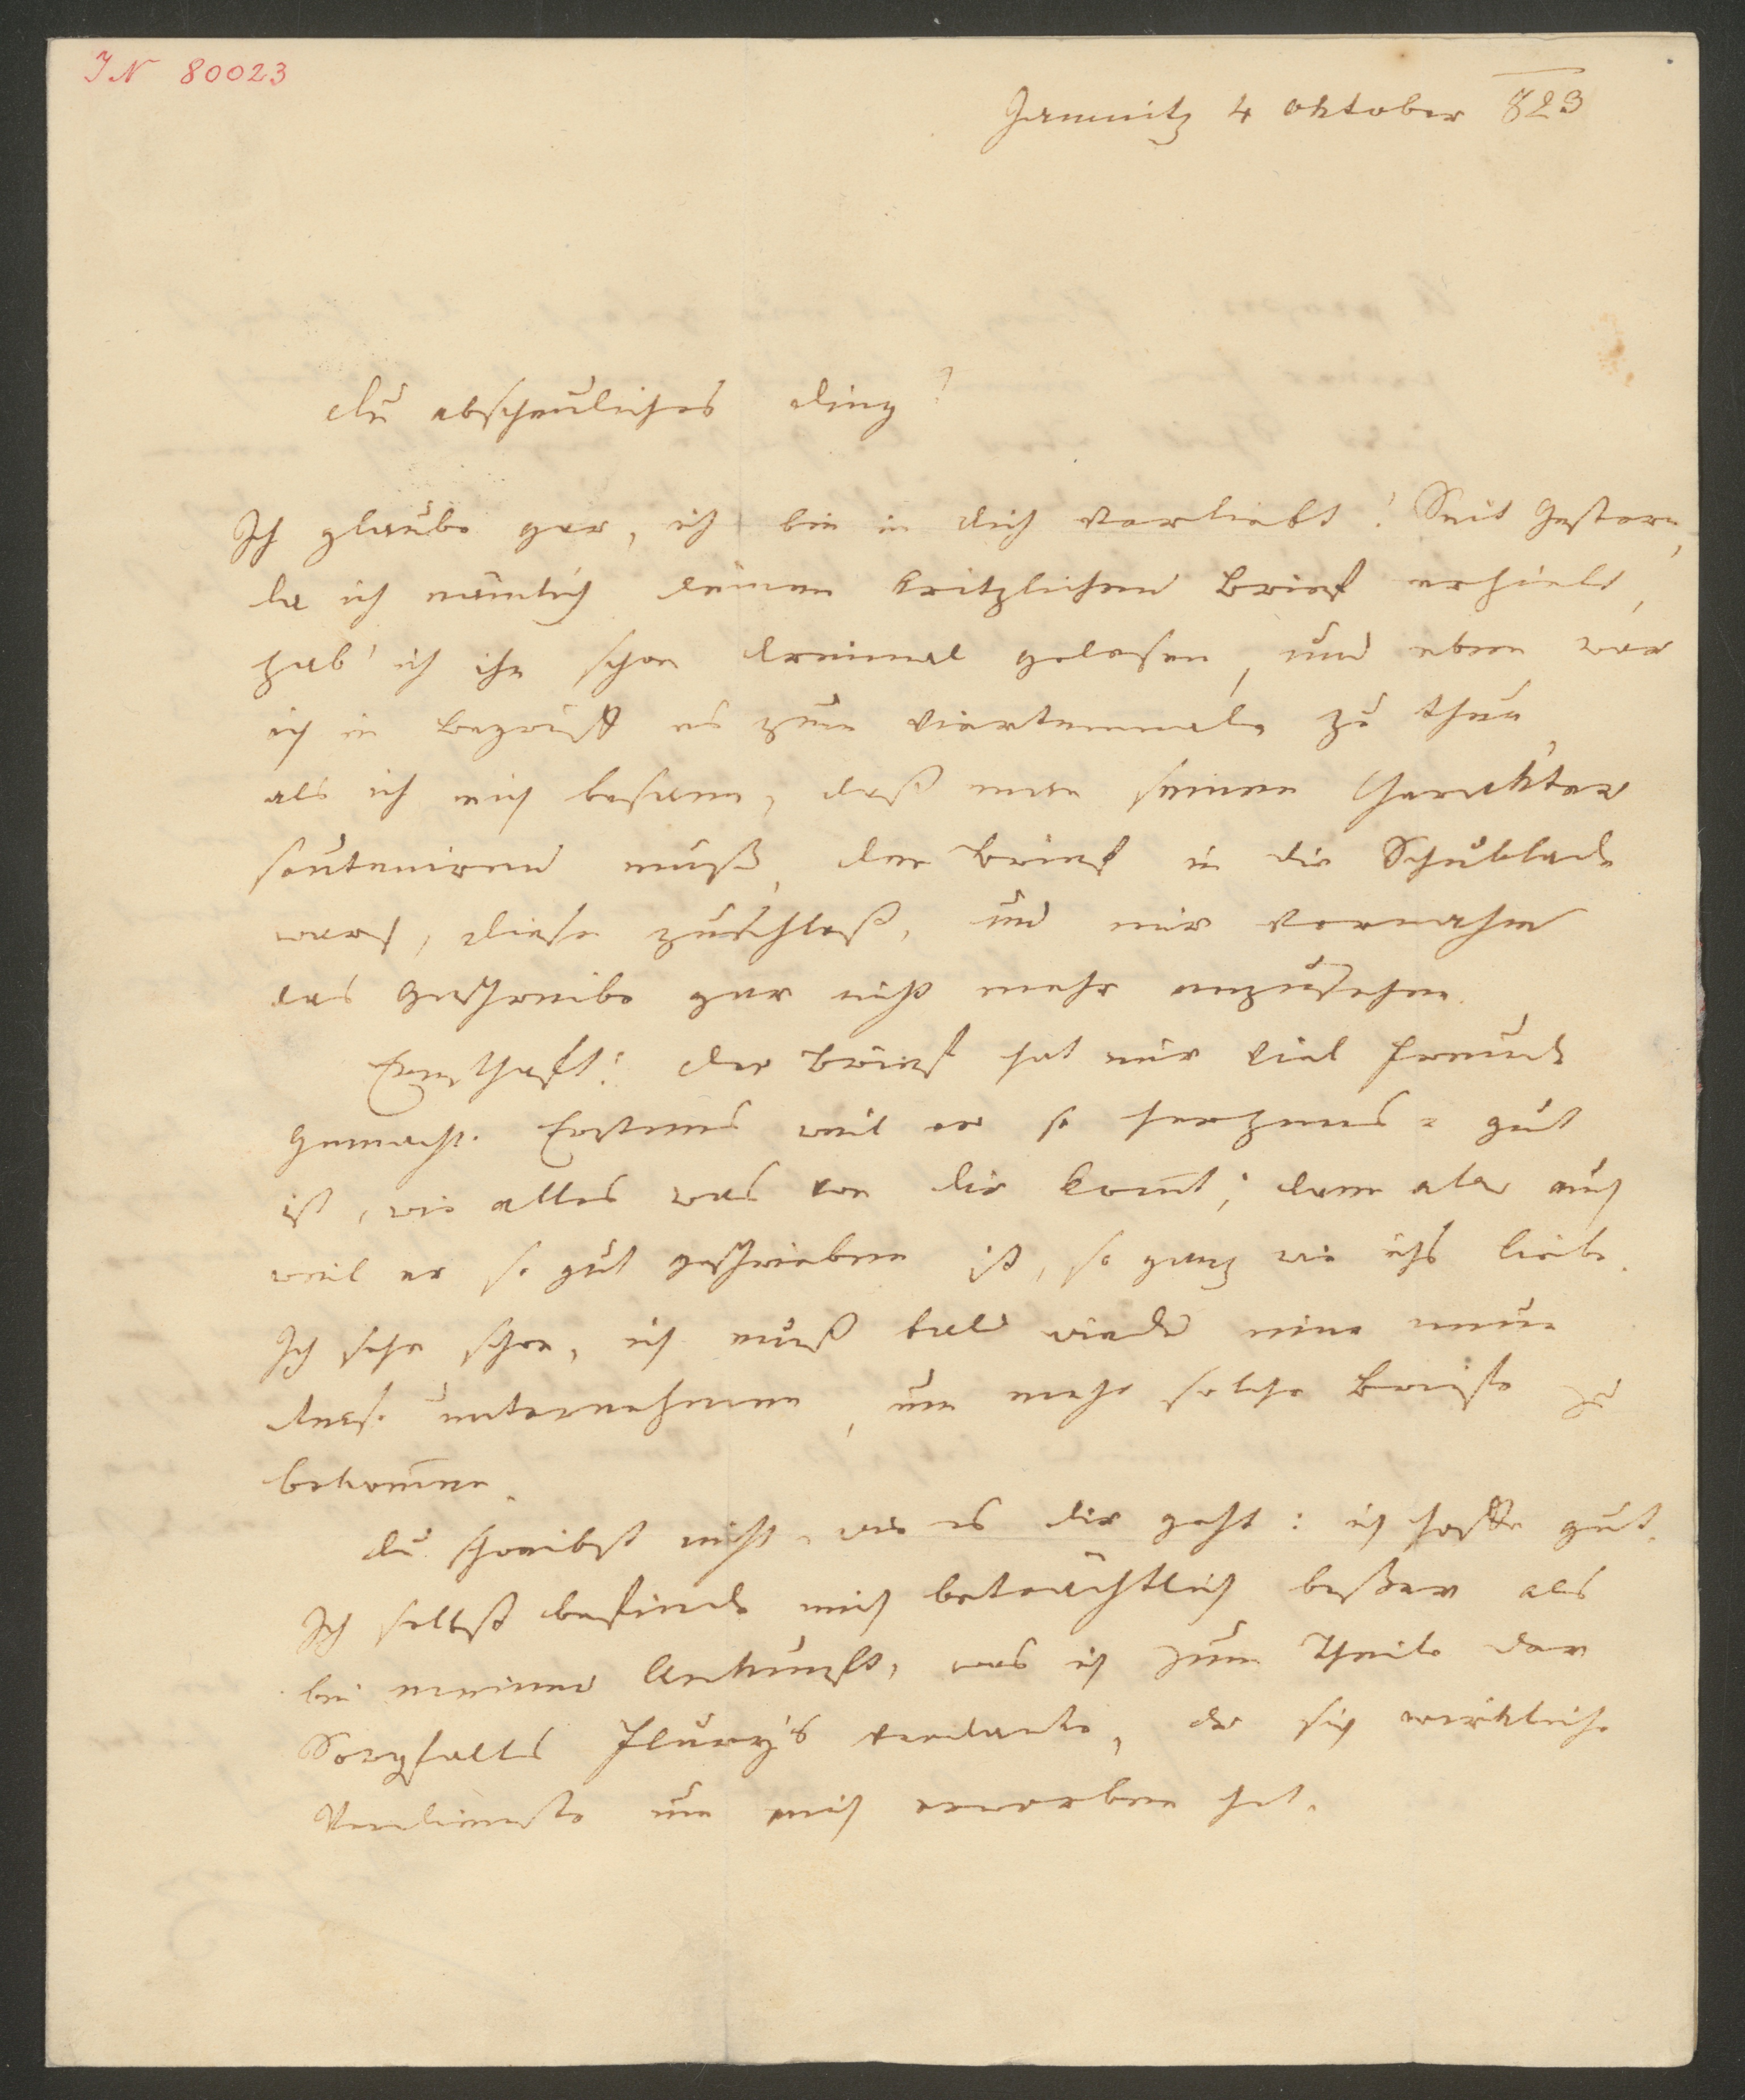 IN 80023
Jamnitz 4 Oktober 823
Du abscheuliches Ding!
Ich glaube gar, ich bin in dich verliebt! Seit Gestern,
da ich nämlich deinen kritzlichen Brief erhielt,
hab' ich ihn schon dreimal gelesen, und eben war
ich in Begriff es zum viertenmale zu thun,
als ich mich besann, daß man seinen Charakter
souteniren muß, den Brief in die Schublade
warf, diese zuschloß, und mir vornahm
das Geschreibe gar nicht mehr anzusehen.
Ernsthaft: der Brief hat mir viel Freude
gemacht. Erstens weil er so herzens=gut
ist, wie alles was von dir kom̄t; dann aber auch
weil er so gut geschrieben ist, so ganz wie ichs liebe.
Ich sehe schon, ich muß bald wieder eine neue
unternehmen, um mehr solche Briefe zu
bekom̄en.
Du schreibst nicht, wie es dir geht: ich hoffe gut.
Ich selbst befinde mich beträchtlich beßer als
bei meiner Ankunft, was ich zum Theile der
Sorgfalt Flury's verdanke, der sich wirkliche
Verdienste um mich erworben hat.